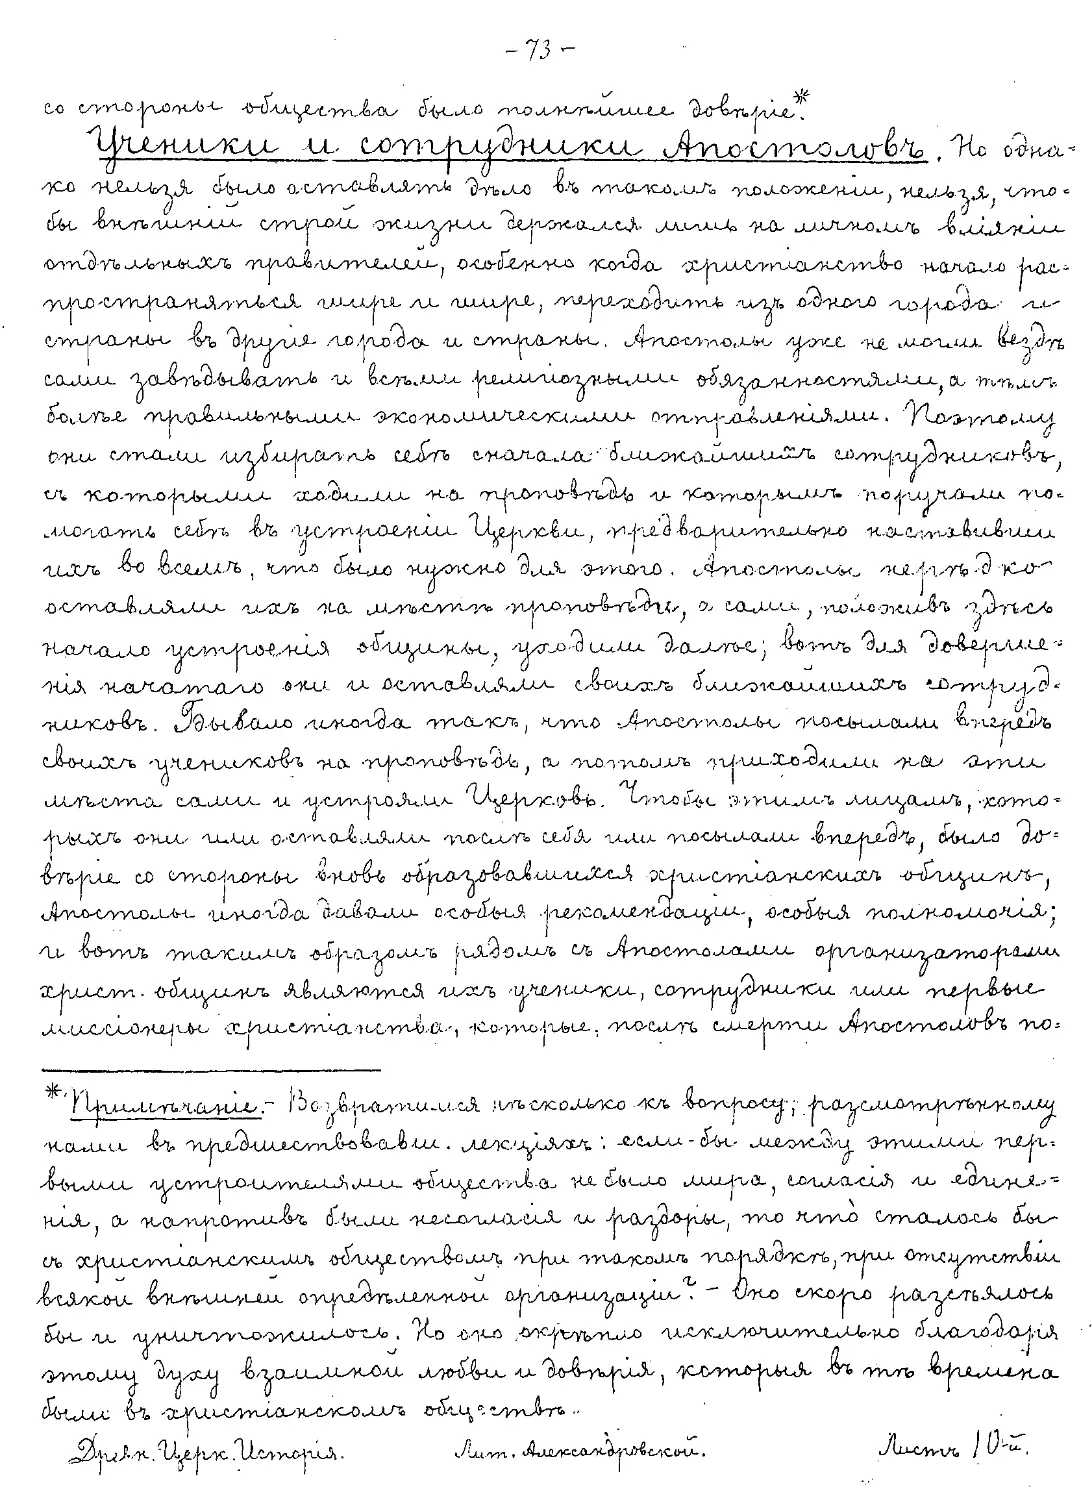 - 73 -
со стороны общества было полнѣйшее довѣріе.*
Ученики и сотрудники Апостоловъ. Но одна=
ко нельзя было оставлять дѣло въ такомъ положеніи, нельзя, что=
бы внѣшній строй жизни держался лишь на личномъ вліяніи
отдѣльныхъ правителей, особенно когда христіанство начало рас=
пространяться шире и шире, переходить изъ одного города и
страны въ другіе города и страны. Апостолы уже не могли вездѣ
сами завѣдывать и всѣми религіозными обязанностями, а тѣмъ
болѣе правильными экономическими отправленіями. Поэтому
они стали избирать себѣ сначала ближайшихъ сотрудниковъ,
съ которыми ходили на проповѣдь и которымъ поручали по=
могать себѣ въ устроеніи Церкви, предварительно наставивши
ихъ во всемъ, что было нужно для этого. Апостолы нерѣдко
оставляли ихъ на мѣстѣ проповѣди, а сами, положивъ здѣсь
начало устроенія общины, уходили далѣе; вотъ для доверше=
нія начатаго они и оставляли своихъ ближайшихъ сотруд=
никовъ. Бывало иногда такъ, что Апостолы посылали впередъ
своихъ учениковъ на проповѣдь, а потомъ приходили на эти
мѣста сами и устрояли Церковь. Чтобы этимъ лицамъ, кото=
рыхъ они или оставляли послѣ себя или посылали впередъ, было до=
вѣріе со стороны вновь образовавшихся христіанскихъ общинъ,
Апостолы иногда давали особыя рекомендаціи, особыя полномочія;
и вотъ такимъ образомъ рядомъ съ Апостолами организаторами
христ. общинъ являются ихъ ученики, сотрудники или первые
миссіонеры христіанства, которые, послѣ смерти Апостоловъ по=
* Примѣчаніе.- Возвратимся нѣсколько къ вопросу, разсмотрѣнному
нами въ предшествовавш. лекціяхъ: если-бы между этими пер=
выми устроителями общества не было мира, согласія и едине=
нія, а напротивъ были несогласія и раздоры, то что сталось бы
съ христіанскимъ обществомъ при такомъ порядкѣ, при отсутствіи
всякой внѣшней опредѣленной организаціи? - Оно скоро разсѣялось
бы и уничтожилось. Но оно окрѣпло исключительно благодаря
этому духу взаимной любви и довѣрія, которыя въ тѣ времена
были въ христіанскомъ обществѣ..
Древн. Церк. Исторія. Лит. Александровской. Листъ 10-й.